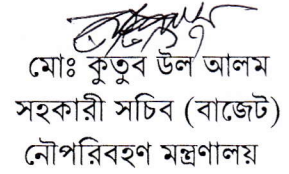 মোঃ কুতুব উল আলম
সহকারী সচিব (বাজেট)
নৌপরিবহণ মন্ত্রণালয়